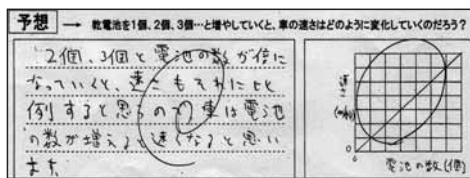 予想 → 乾電池を1個、2個、3個…と増やしていくと、車の速さはどのように変化していくのだろう？
2個、3個と電池の数が倍に
なっていくと、速さもそれに比
例すると思うので、車は電池
の数が増えると速くなると思い
ます。
速さ
0
電池の数(個)